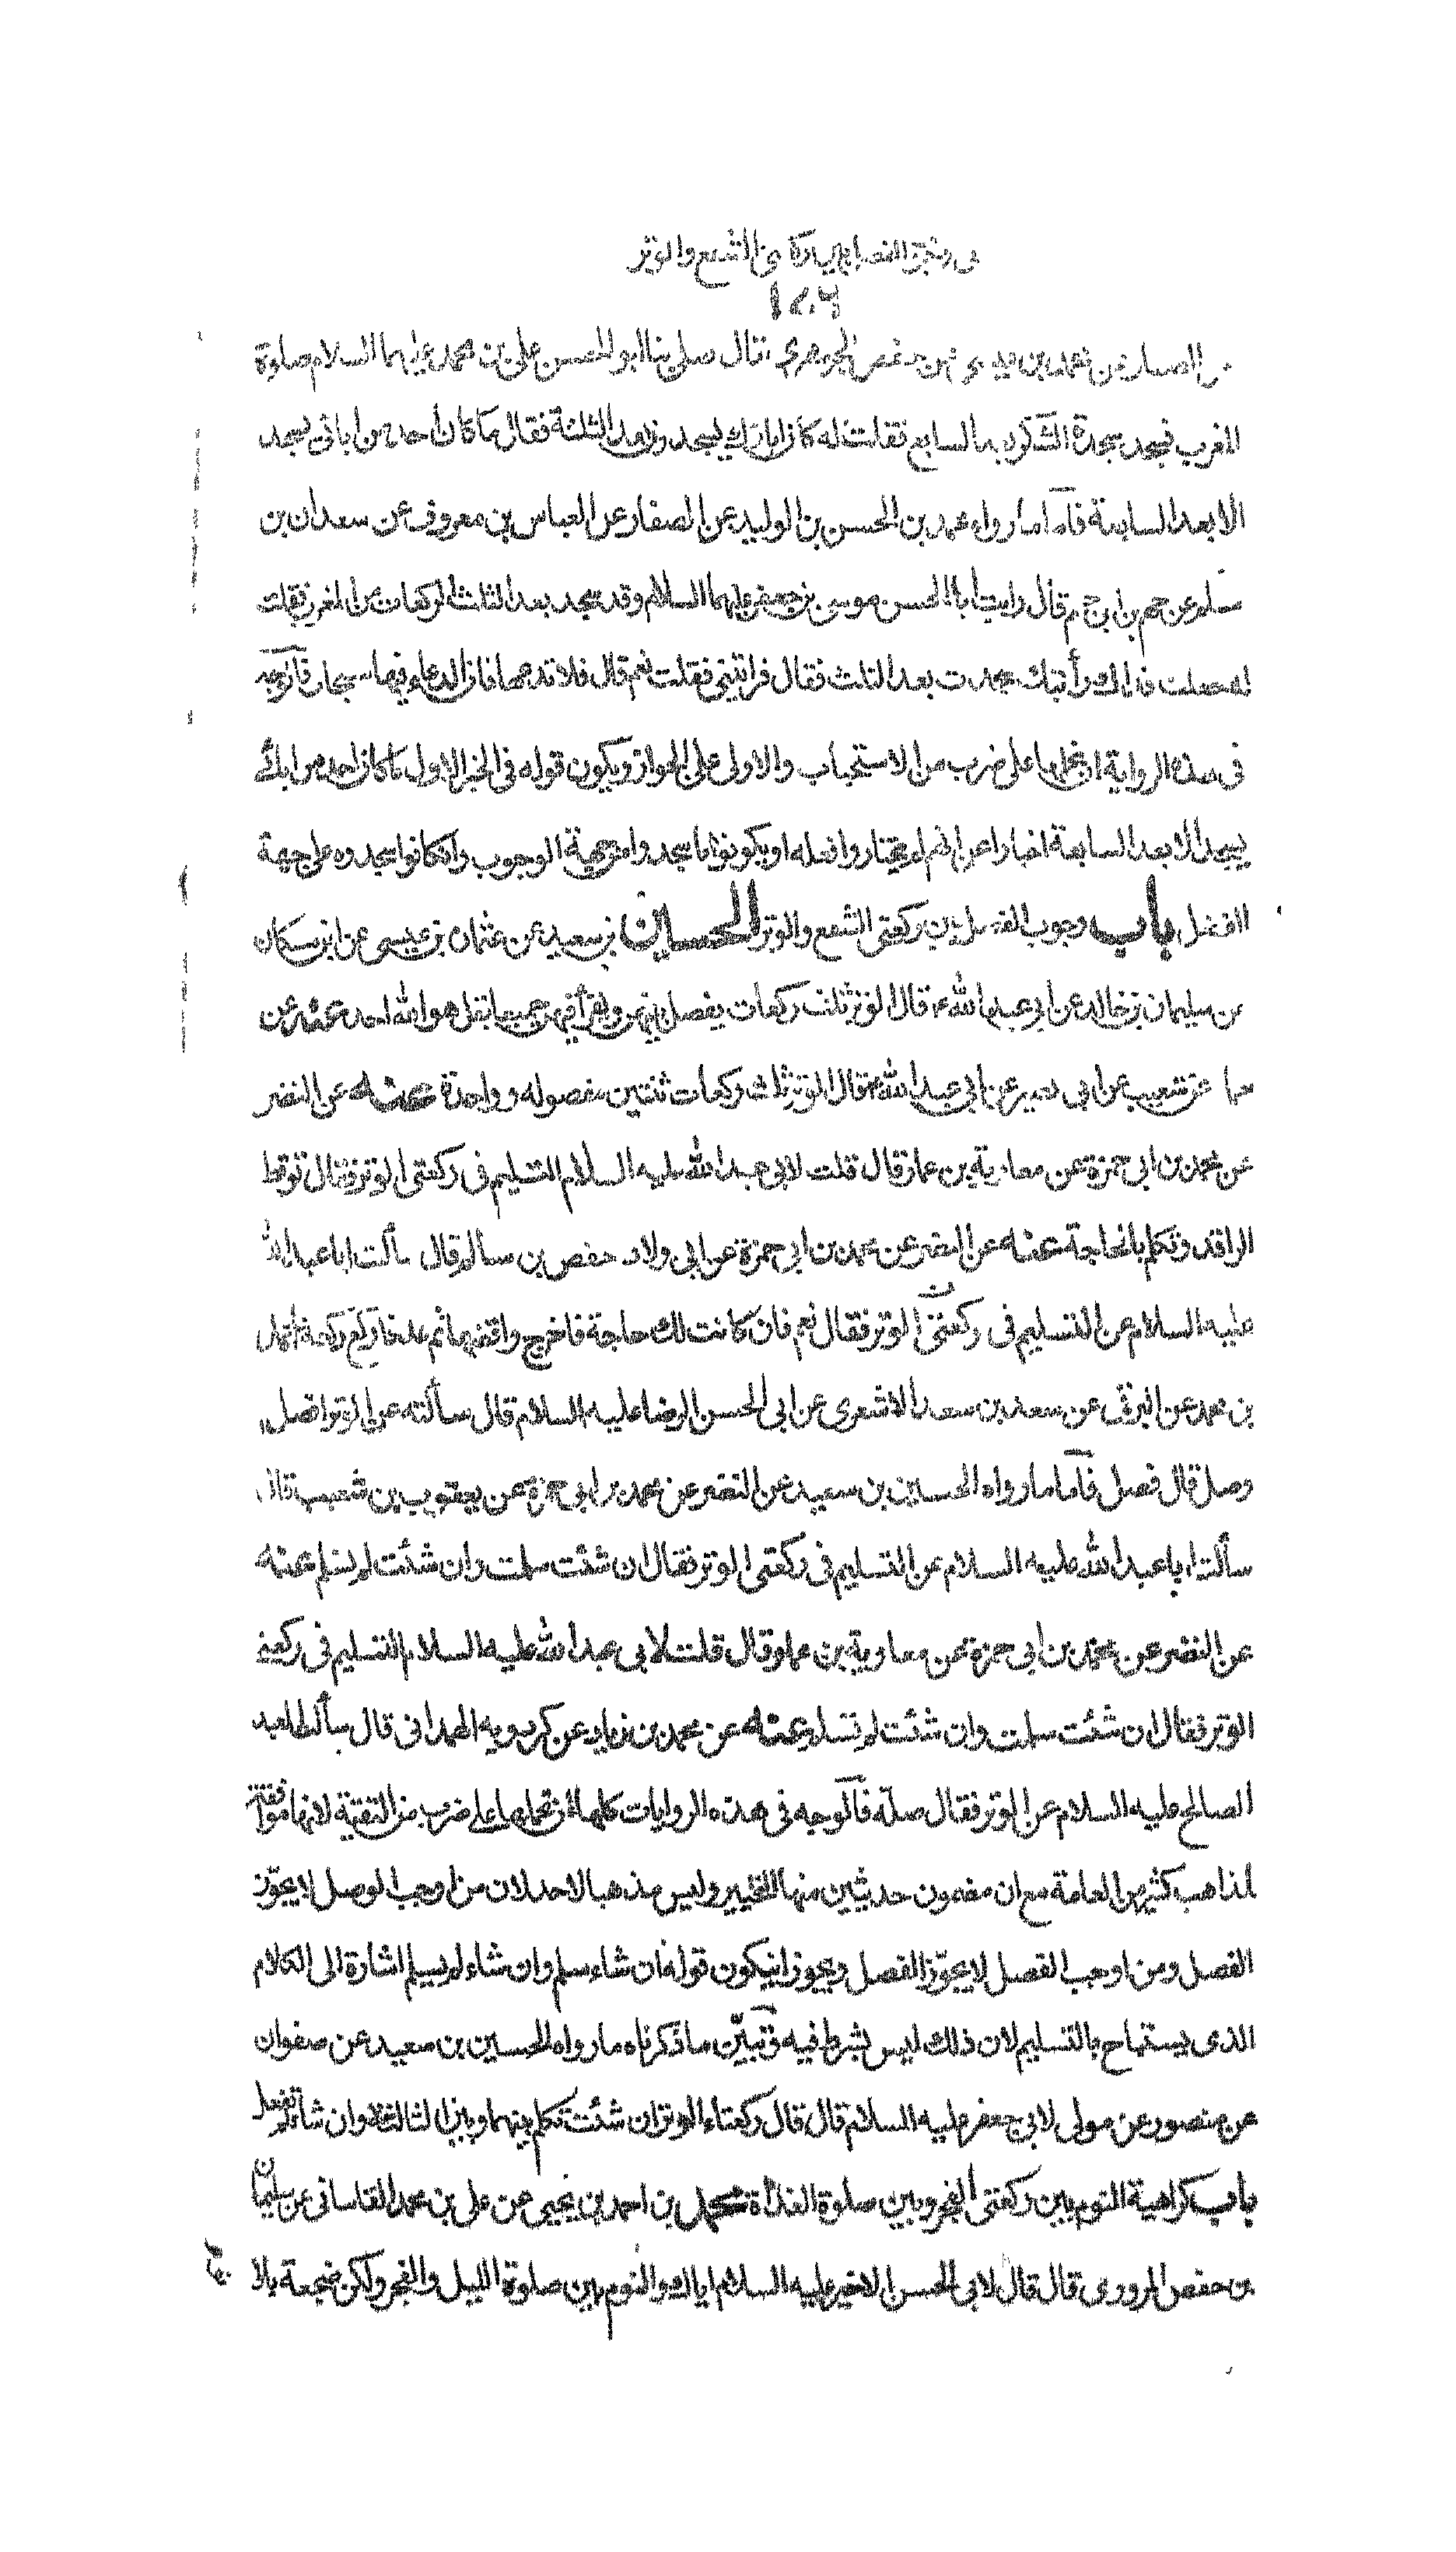 في وجوب الفصل بين ركعتي الشفع والوتر
١٢٠٦
الصفار عن محمد بن عن حفص الجوهري قال صلى بنا ابو الحسن علي بن محمد عليهما السلام صلوة
المغرب فسجد سجدة الشكر بعد السابعة فقلت له كان اباؤك يسجدون بعد الثلثة فقال ما كان احد من ابائي يسجد
الا بعد السابعة فاما ما رواه محمد بن الحسن بن الوليد عن الصفار عن العباس بن معروف عن سعدان بن
مسلم عن جهم بن ابي جهم قال رايت ابا الحسن موسى بن جعفر عليهما السلام وقد سجد بعد الثلث الركعات من المغرب فقلت
له جعلت فداك رأيتك سجدت بعد الثلث فقال فرايتني فقلت نعم قال فلا تدعها فان الدعاء فيها مستجاب فالوجه
في هذه الرواية ان نحملها على ضرب من الاستحباب والاولى على الجواز ويكون قوله في الخبر الاول ما كان احد من ابائي
يسجد الا بعد السابعة اخبارا عن انهم لم يختاروا فعله او يكونوا ما سجدوا من جهة الوجوب وان كانوا سجدوه على جهة
الفضل باب وجوب الفصل بين ركعتي الشفع والوتر الحسين بن سعيد عن عثمان بن عيسى عن ابن مسكان
عن سليمان بن خالد عن ابي عبد الله ع قال الوتر ثلث ركعات يفصل بينهن ويقرأ فيهن جميعا بقل هو الله احد عنه عن
حماد عن شعيب عن ابي بصير عن ابي عبد الله ع قال الوتر ثلاث ركعات ثنتين مفصوله وواحدة عنه عن النضر
عن محمد بن ابي حمزة عن معاوية بن عمار قال قلت لابي عبد الله عليه السلام التسليم في ركعتي الوتر فقال توقظ
الراقد وتكلم بالحاجة عنه عن النضر عن محمد بن ابي حمزة عن ابي ولاد حفص بن سالم قال سألت ابا عبد الله
عليه السلام عن التسليم في ركعتي الوتر فقال نعم فان كانت لك حاجة فاخرج واقضها ثم عد فاركع ركعة احمد
بن محمد عن البرقي عن سعد بن سعد الاشعري عن ابي الحسن الرضا عليه السلام قال سألته عن الوتر افصل ام
وصل قال فصل فاما ما رواه الحسين بن سعيد عن النضر عن محمد بن ابي حمزة عن يعقوب بن شعيب قال
سألت ابا عبد الله عليه السلام عن التسليم في ركعتي الوتر فقال ان شئت سلمت وان شئت لم تسلم عنه
عن النضر عن محمد بن ابي حمزة عن معاوية بن عمار قال قلت لابي عبد الله عليه السلام التسليم في ركعتي
الوتر فقال ان شئت سلمت وان شئت لم تسلم عنه عن محمد بن زياد عن كردويه الهمداني قال سألت العبد
الصالح عليه السلام عن الوتر فقال صله فالوجه في هذه الروايات كلها ان نحملها على ضرب من التقية لانها موافقة
لمذاهب كثير من العامة مع ان مضمون حديثين منها التخيير وليس مذهبا لاحد لان من اوجب الوصل لا يجوز
الفصل ومن اوجب الفصل لا يجوز الفصل ويجوز ان يكون قوله ان شاء سلم وان شاء لم يسلم اشارة الى الكلام
الذي يستباح بالتسليم لان ذلك ليس بشرط فيه وتبين ما ذكرناه ما رواه الحسين بن سعيد عن صفوان
عن منصور عن مولى لابي جعفر عليه السلام قال قال ركعتا الوتر ان شئت تكلم بينهما وبين الثالثة وان شئت لم تفعل
باب كراهية النوم بين ركعتي الفجر وبين صلوة الغداة محمد بن احمد بن يحيى عن علي بن محمد القاساني عن سليمان
بن حفص المروزي قال قال لابي الحسن الاخير عليه السلام اياك والنوم بين صلوة الليل والفجر ولكن ضجعة بلا